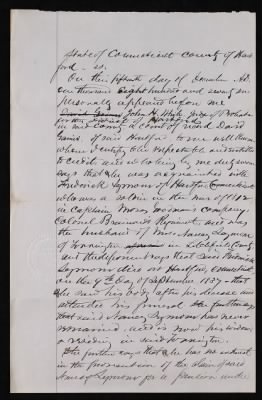 State of Connecticut County of Hart
ford. ss.
On this fifteenth day of December A.D.
one thousand eight hundred and seventy one
personally appeared before me
John H. White Judge of Probate
in said County a Court of record David
of said Hartford to me well
whom I certify to be respectable and entitled
to credit and who being by me duly sworn
says that he was acquainted with
Frederick Seymour of Hartford Connecticut
who was a soldier in the war of 1812
in Captain Company
Colonel Regiment and was
the husband of Mrs Nancy Seymour
of Torrington in Litchfield County
and the deponent says that said Frederick
Seymour died at Hartford, Connecticut
on the 9th day of September 1837 that
he saw his body after his decease and
attended his funeral he further says
that said Nancy Seymour has never
remarried and is now his widow
residing in said Torrington.
He further says that he has no interest
in the prosecution of the claim of said
Nancy Seymour for a pension under